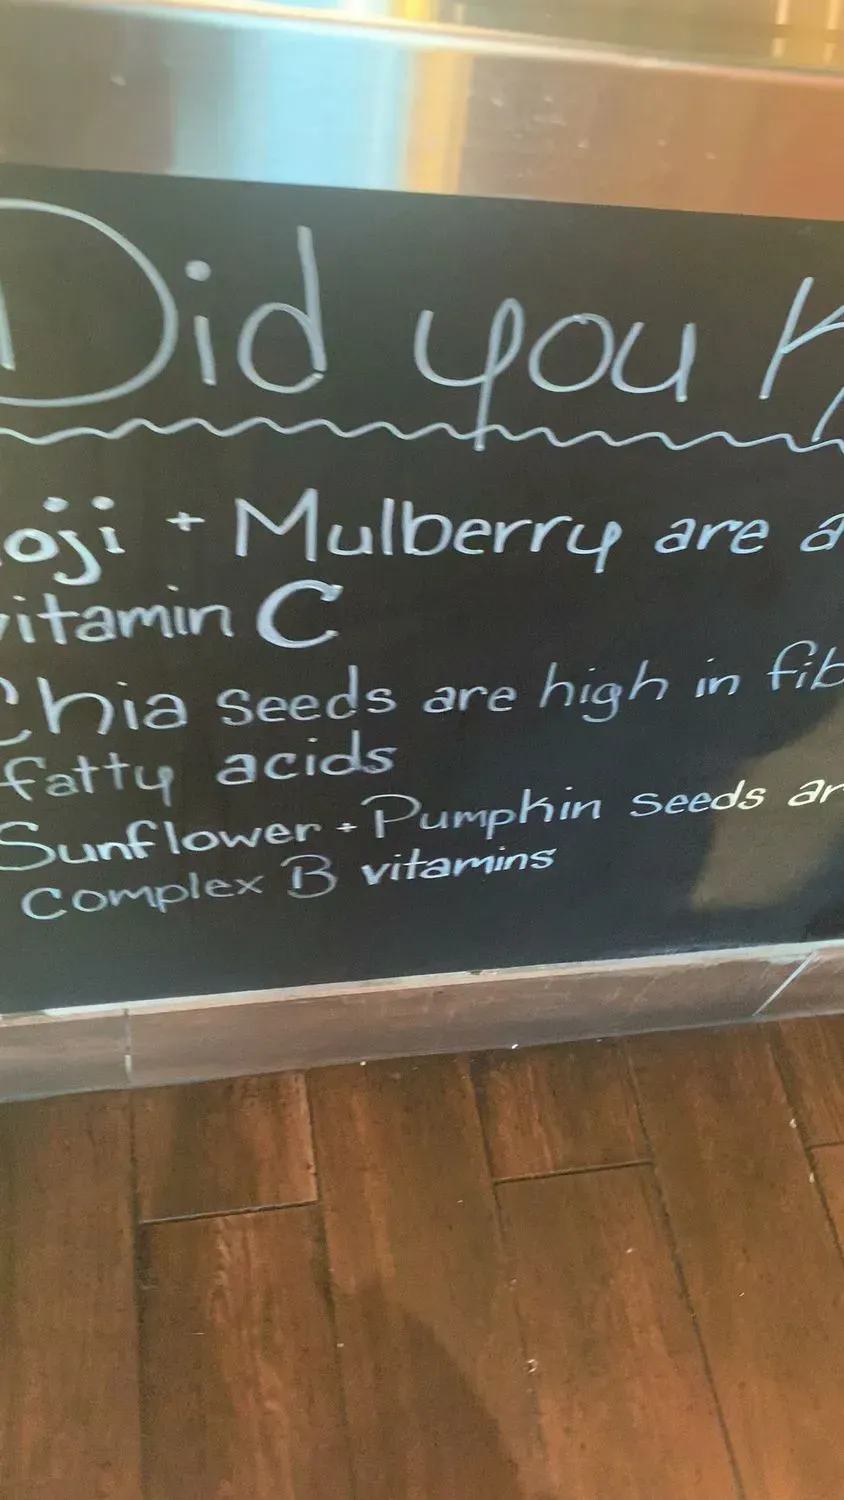 Did you K
oji + Mulberry are a
vitamin C
Chia seeds are high in fib
fatty acids
Sunflower + Pumpkin seeds ar
complex B vitamins